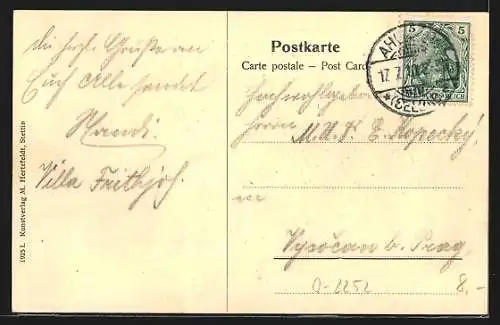 Die herzl. Grüße an
Euch Alle sendet
Mandi.
Villa Frithjof.
1925 L Kunstverlag M. Hertzfeldt, Stettin
Postkarte
Carte postale – Post Card
5 5
AHL
17. 7. 10.
(SEE
REICH
Hochwohlgeboren
Herrn
M.U.Dr. E. Kopecký,
in
Vysočan b. Prag,
O-2252
8.-